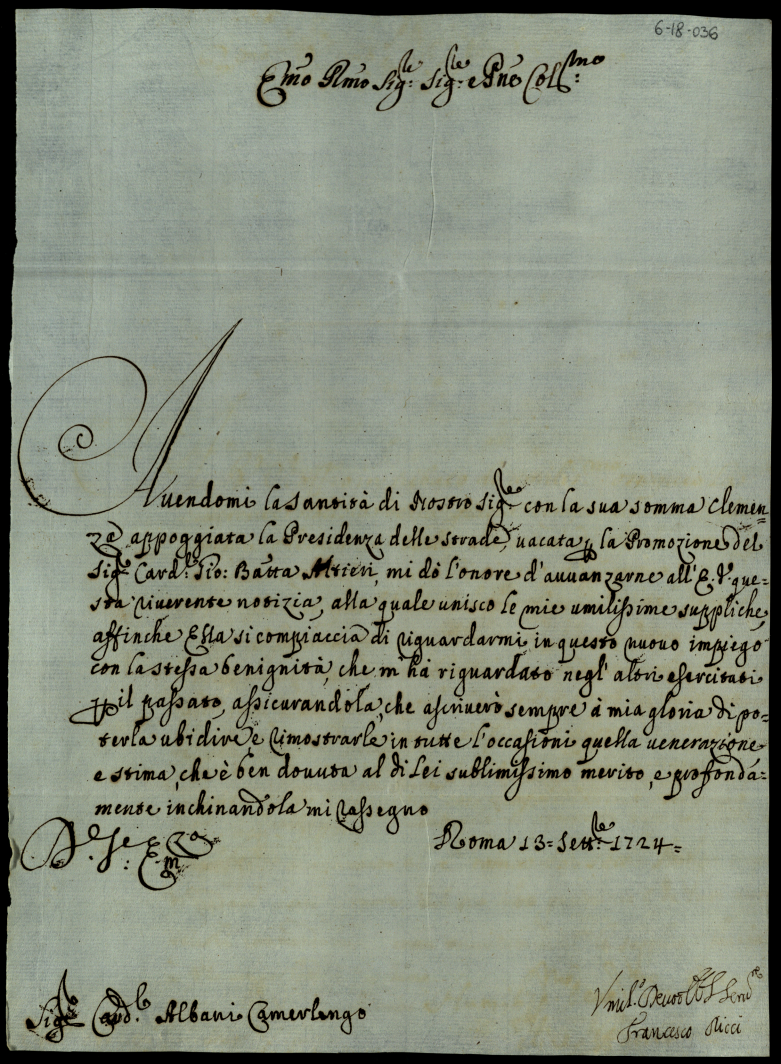 6-18-036
Emo Rmo Sig.re Sig.re e Pne Col.mo
Auendomi la Santità di Nostro Sig.re con la sua somma clemen=
za appoggiata la Presidenza delle strade, uacata p la Promozione del
Sig.r Card.l Gio: Batta Altieri, mi dò l'onore d'auuanzarne all'E. V. que=
sta riuerente notizia, alla quale unisco le mie umilissime suppliche,
affinche Ella si compiaccia di riguardarmi in questo nuouo impiego
con la stessa benignità, che m'hà riguardato negl'altri esercitati
p il passato, assicurandola, che ascriuerò sempre à mia gloria di po=
terla ubidire e rimostrarle in tutte l'occasioni quella uenerazione
e stima, che è ben douuta al di Lei sublimissimo merito, e profonda=
mente inchinandola mi rassegno
Roma 13= Sett.re 1724=
Sig.r Card.l Albani Camerlengo
Vmil.o Deuot.o Obb.o Seru.re
Francesco Ricci